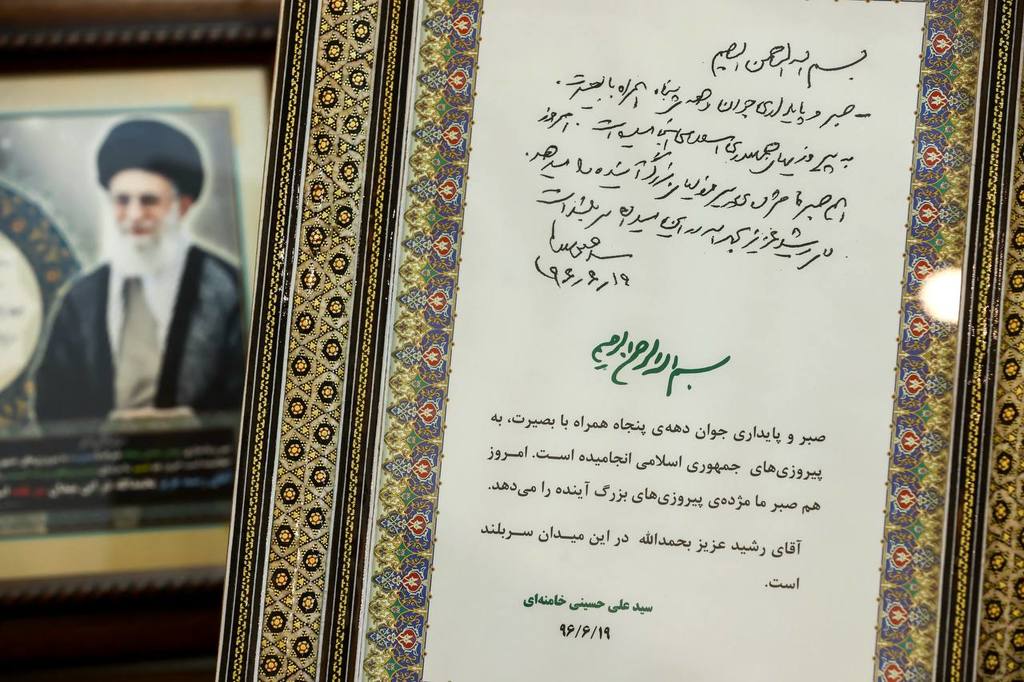 بسم الله الرحمن الرحیم
- صبر و پایداری جوان دهه‌ی پنجاه همراه با بصیرت،
به پیروزیهای جمهوری اسلامی انجامیده است. امروز
هم صبر ما مژده‌ی پیروزیهای بزرگ آینده را میدهد.
آقای رشید عزیز بحمدالله در این میدان سربلند است
۹۶/۶/۱۹
بسم الله الرحمن الرحیم
صبر و پایداری جوان دهه‌ی پنجاه همراه با بصیرت، به
پیروزی‌های جمهوری اسلامی انجامیده است. امروز
هم صبر ما مژده‌ی پیروزی‌های بزرگ آینده را می‌دهد.
آقای رشید عزیز بحمدالله در این میدان سربلند
است.
سید علی حسینی خامنه‌ای
۹۶/۶/۱۹